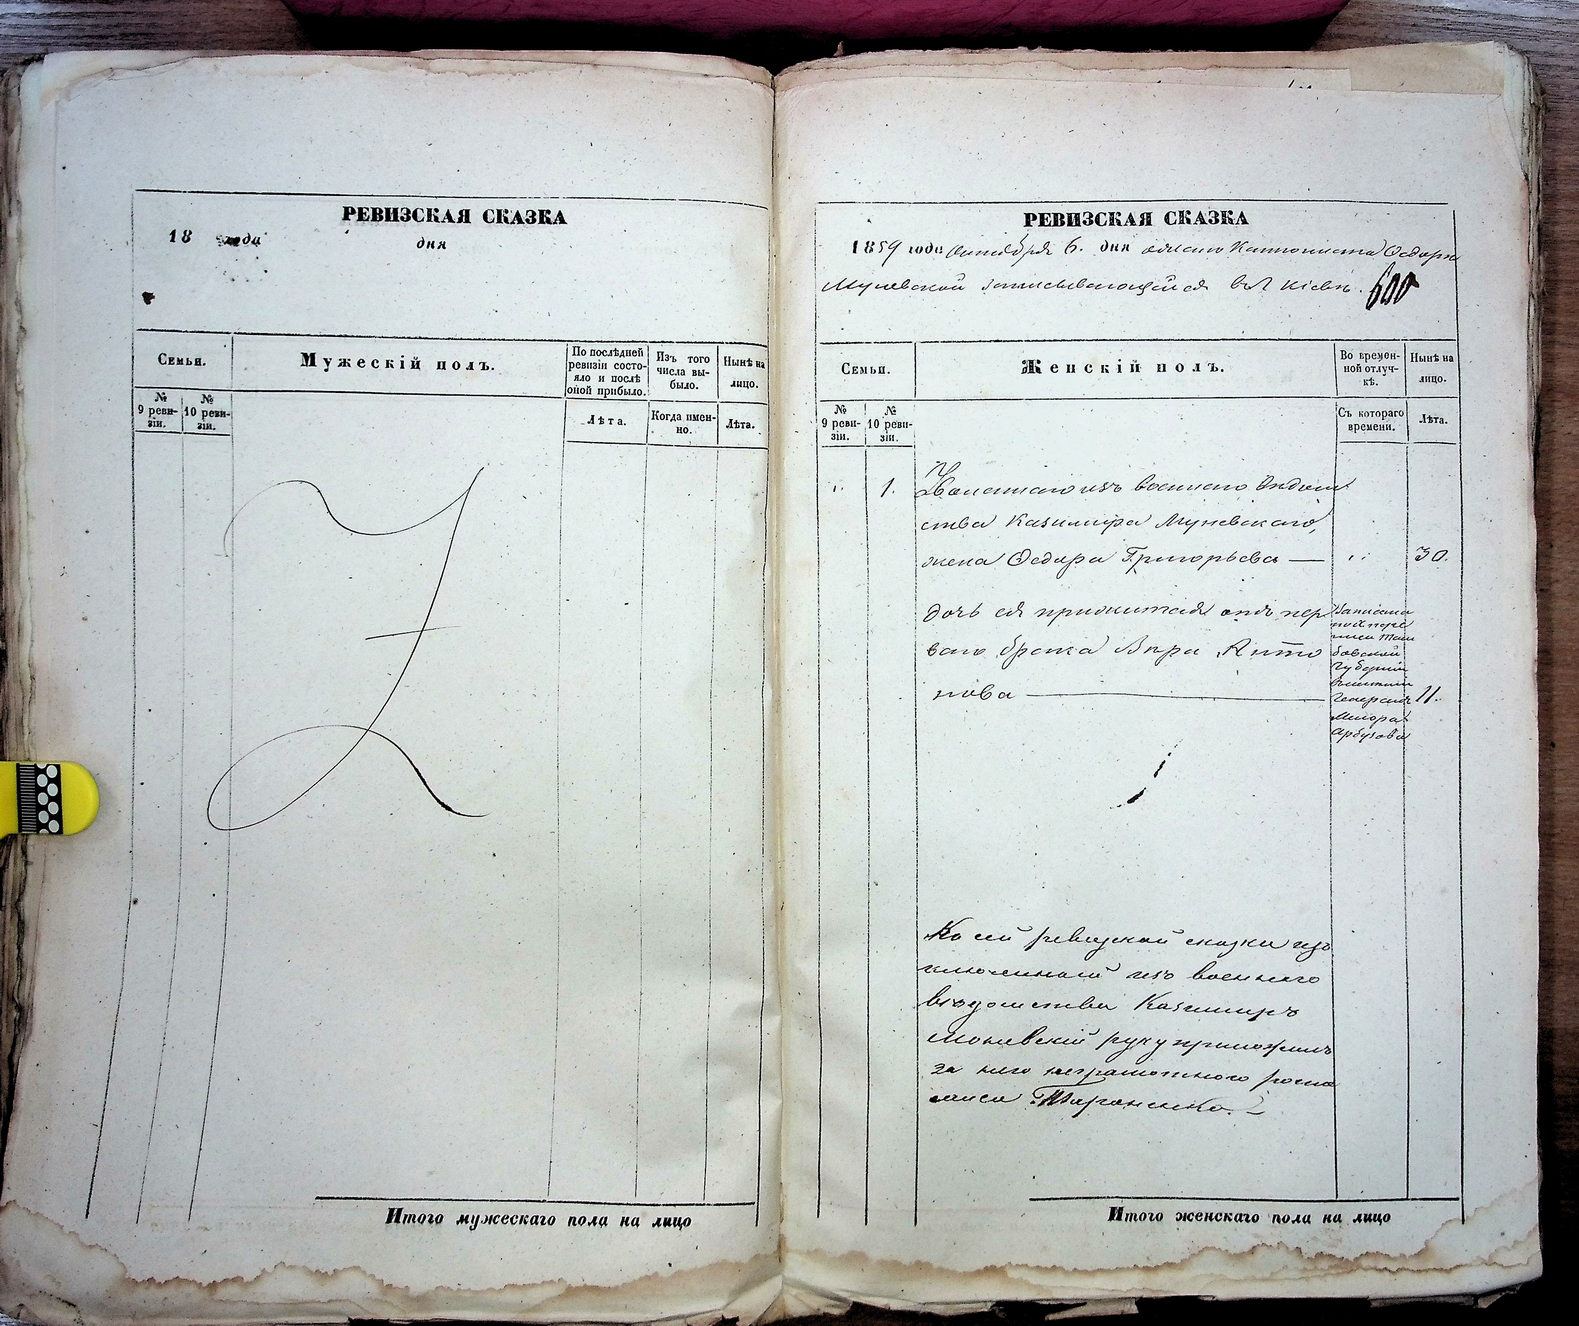 РЕВИЗСКАЯ СКАЗКА
18 года дня
Семьи.
Мужескій полъ.
По послѣдней
ревизіи состо-
яло и послѣ
оной прибыло.
Изъ того
числа вы-
было.
Нынѣ на
лицо.
№
9 реви-
зіи.
№
10 реви-
зіи.
Лѣта.
Когда имен-
но.
Лѣта.
Итого мужескаго пола на лицо
РЕВИЗСКАЯ СКАЗКА
1859 года Октября 6. дня Кантониста Ѳедоры
записывающейся въ г. Кіевъ. 600
Семьи.
Женскій полъ.
Во времен-
ной отлуч-
кѣ.
Нынѣ на
лицо.
№
9 реви-
зіи.
№
10 реви-
зіи.
Съ котораго
времени.
Лѣта.
1. изъ военнаго вѣдом
ства Казимира Муневскаго,
жена Ѳедора Григорьева — 30.
дочь ея прижитая отъ пер
ваго брака Вѣра Анто
нова — 11.
Записана
по Х пере
писи Там
бовской
Губерніи
въ имѣніи
Генералъ
Маіора
Арбузова
Къ сей ревизской сказки изъ
ключенный изъ военнаго
вѣдомства Казимиръ
Моневскій руку приложилъ
за него неграмотного роспи
Тараненко.
Итого женскаго пола на лицо